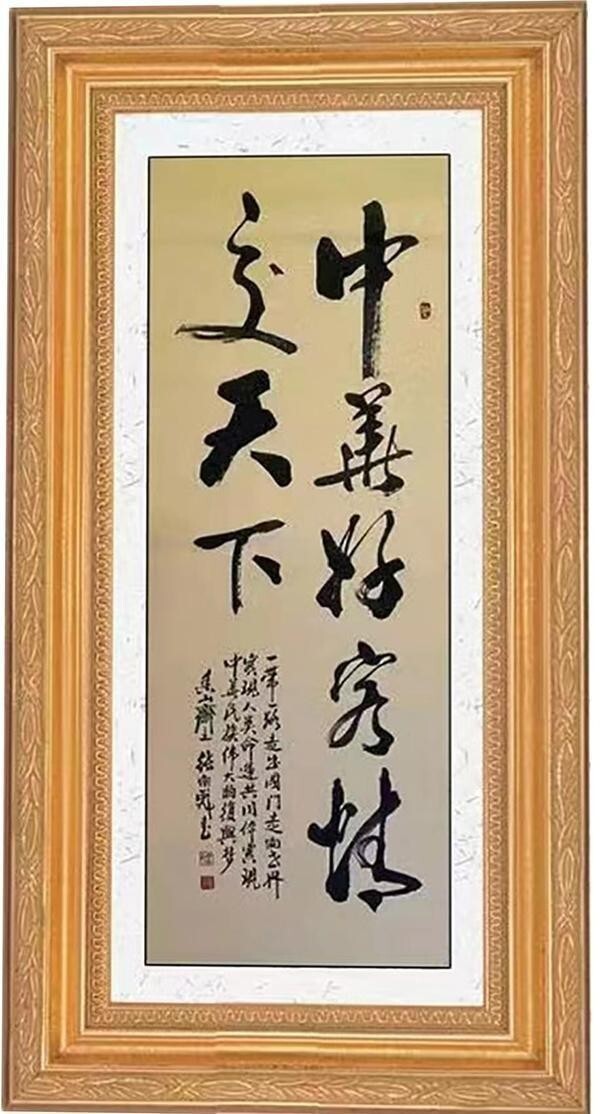 中華好客情
交天下
一带一路走出国门走向世界
实现人类命运共同体实现
中华民族伟大的复興梦